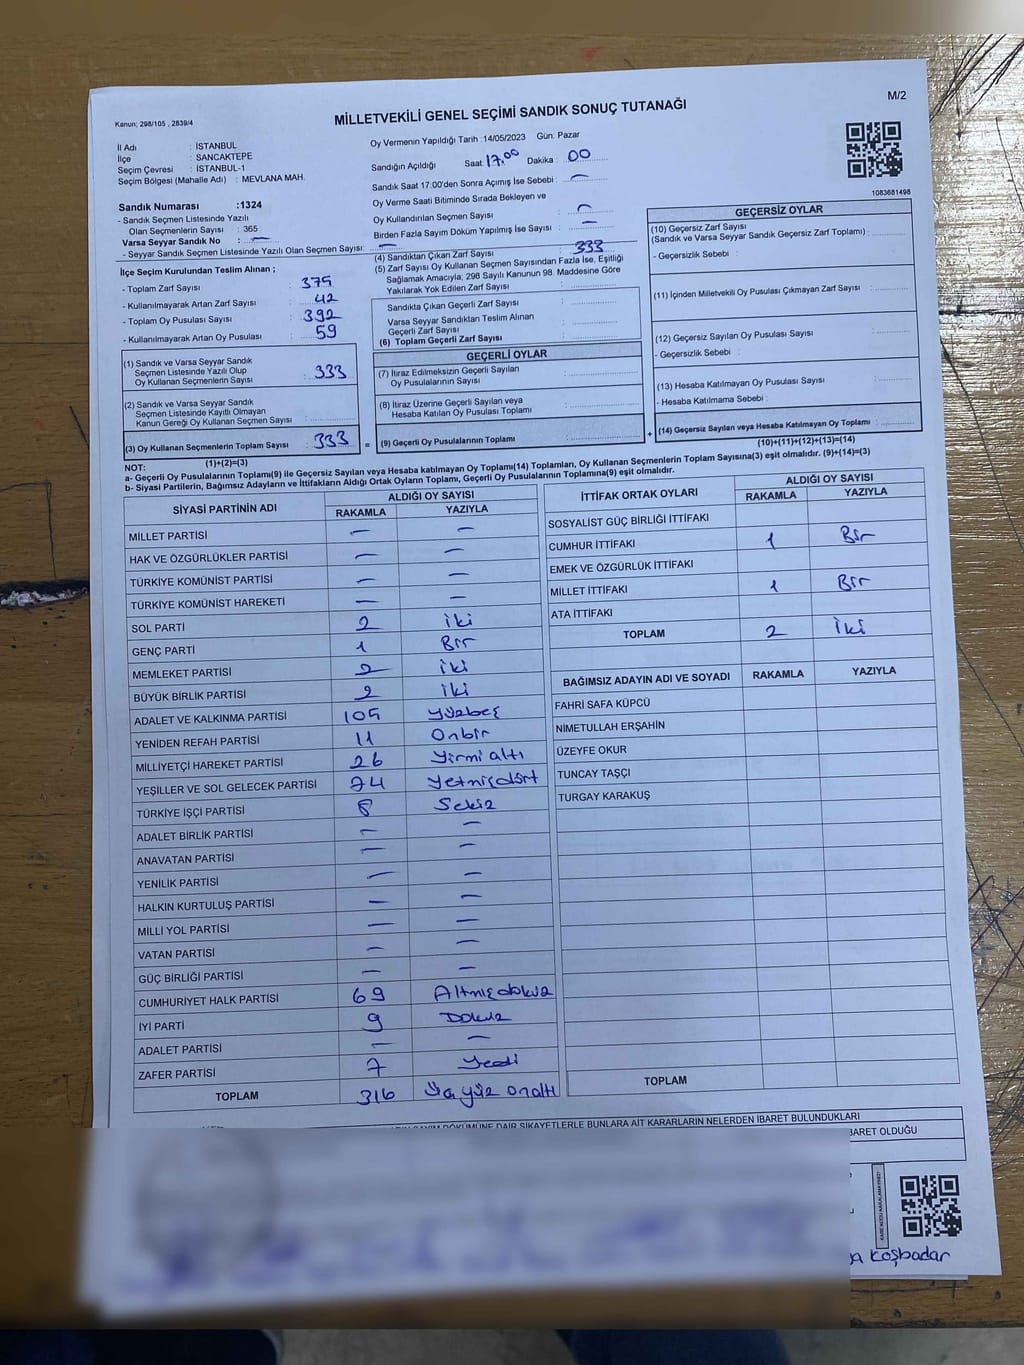 Kanun; 298/105 , 2839/4
MİLLETVEKİLİ GENEL SEÇİMİ SANDIK SONUÇ TUTANAĞI
M/2
İl Adı : İSTANBUL
İlçe : SANCAKTEPE
Seçim Çevresi : İSTANBUL-1
Seçim Bölgesi (Mahalle Adı) : MEVLANA MAH.
Oy Vermenin Yapıldığı Tarih :14/05/2023 Gün: Pazar
Sandığın Açıldığı Saat: 17.00 Dakika : 00
Sandık Saat 17:00'den Sonra Açımış İse Sebebi : —
Oy Verme Saati Bitiminde Sırada Bekleyen ve
Oy Kullandırılan Seçmen Sayısı : —
Birden Fazla Sayım Döküm Yapılmış İse Sayısı : —
1083681498
Sandık Numarası :1324
- Sandık Seçmen Listesinde Yazılı
Olan Seçmenlerin Sayısı : 365
Varsa Seyyar Sandık No : —
- Seyyar Sandık Seçmen Listesinde Yazılı Olan Seçmen Sayısı: —
İlçe Seçim Kurulundan Teslim Alınan ;
- Toplam Zarf Sayısı : 375
- Kullanılmayarak Artan Zarf Sayısı : 42
- Toplam Oy Pusulası Sayısı : 392
- Kullanılmayarak Artan Oy Pusulası : 59
(1) Sandık ve Varsa Seyyar Sandık
Seçmen Listesinde Yazılı Olup
Oy Kullanan Seçmenlerin Sayısı : 333
(2) Sandık ve Varsa Seyyar Sandık
Seçmen Listesinde Kayıtlı Olmayan
Kanun Gereği Oy Kullanan Seçmen Sayısı :
(3) Oy Kullanan Seçmenlerin Toplam Sayısı : 333 =
(1)+(2)=(3)
(4) Sandıktan Çıkan Zarf Sayısı : 333
(5) Zarf Sayısı Oy Kullanan Seçmen Sayısından Fazla İse, Eşitliği
Sağlamak Amacıyla; 298 Sayılı Kanunun 98. Maddesine Göre
Yakılarak Yok Edilen Zarf Sayısı :
Sandıkta Çıkan Geçerli Zarf Sayısı :
Varsa Seyyar Sandıktan Teslim Alınan
Geçerli Zarf Sayısı :
(6) Toplam Geçerli Zarf Sayısı :
GEÇERLİ OYLAR
(7) İtiraz Edilmeksizin Geçerli Sayılan
Oy Pusulalarının Sayısı :
(8) İtiraz Üzerine Geçerli Sayılan veya
Hesaba Katılan Oy Pusulası Toplamı :
(9) Geçerli Oy Pusulalarının Toplamı : +
GEÇERSİZ OYLAR
(10) Geçersiz Zarf Sayısı
(Sandık ve Varsa Seyyar Sandık Geçersiz Zarf Toplamı) :
- Geçersizlik Sebebi :
(11) İçinden Milletvekili Oy Pusulası Çıkmayan Zarf Sayısı :
(12) Geçersiz Sayılan Oy Pusulası Sayısı :
- Geçersizlik Sebebi :
(13) Hesaba Katılmayan Oy Pusulası Sayısı :
- Hesaba Katılmama Sebebi :
(14) Geçersiz Sayılan veya Hesaba Katılmayan Oy Toplamı :
(10)+(11)+(12)+(13)=(14)
NOT:
a- Geçerli Oy Pusulalarının Toplamı(9) ile Geçersiz Sayılan veya Hesaba katılmayan Oy Toplamı(14) Toplamları, Oy Kullanan Seçmenlerin Toplam Sayısına(3) eşit olmalıdır. (9)+(14)=(3)
b- Siyasi Partilerin, Bağımsız Adayların ve İttifakların Aldığı Ortak Oyların Toplamı, Geçerli Oy Pusulalarının Toplamına(9) eşit olmalıdır.
SİYASİ PARTİNİN ADI
ALDIĞI OY SAYISI
RAKAMLA YAZIYLA
MİLLET PARTİSİ — —
HAK VE ÖZGÜRLÜKLER PARTİSİ — —
TÜRKİYE KOMÜNİST PARTİSİ — —
TÜRKİYE KOMÜNİST HAREKETİ — —
SOL PARTİ 2 iki
GENÇ PARTİ 1 Bir
MEMLEKET PARTİSİ 2 iki
BÜYÜK BİRLİK PARTİSİ 2 iki
ADALET VE KALKINMA PARTİSİ 105 yüzbeş
YENİDEN REFAH PARTİSİ 11 Onbir
MİLLİYETÇİ HAREKET PARTİSİ 26 Yirmi altı
YEŞİLLER VE SOL GELECEK PARTİSİ 74 Yetmişdört
TÜRKİYE İŞÇİ PARTİSİ 8 Sekiz
ADALET BİRLİK PARTİSİ — —
ANAVATAN PARTİSİ — —
YENİLİK PARTİSİ — —
HALKIN KURTULUŞ PARTİSİ — —
MİLLİ YOL PARTİSİ — —
VATAN PARTİSİ — —
GÜÇ BİRLİĞİ PARTİSİ — —
CUMHURİYET HALK PARTİSİ 69 Altmışdokuz
İYİ PARTİ 9 Dokuz
ADALET PARTİSİ — —
ZAFER PARTİSİ 7 Yedi
TOPLAM 316 Üç yüz onaltı
İTTİFAK ORTAK OYLARI
ALDIĞI OY SAYISI
RAKAMLA YAZIYLA
SOSYALİST GÜÇ BİRLİĞİ İTTİFAKI
CUMHUR İTTİFAKI 1 Bir
EMEK VE ÖZGÜRLÜK İTTİFAKI
MİLLET İTTİFAKI 1 Bir
ATA İTTİFAKI
TOPLAM 2 iki
BAĞIMSIZ ADAYIN ADI VE SOYADI RAKAMLA YAZIYLA
FAHRİ SAFA KÜPCÜ
NİMETULLAH ERŞAHİN
ÜZEYFE OKUR
TUNCAY TAŞÇI
TURGAY KARAKUŞ
TOPLAM
DÖKÜMÜNE DAİR ŞİKAYETLERLE BUNLARA AİT KARARLARIN NELERDEN İBARET BULUNDUKLARI
BARET OLDUĞU
koşbadar